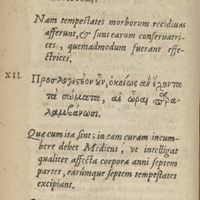 Nam tempestates morborum recidiuas
afferunt, & sunt earum conseruatri-
ces, quemadmodum fuerant effe-
ctrices.
XII. Προσλογιστέον ὦν, ὁκοίως ἂν ἔχοντα
τὰ σώματα, αἱ ὧραι παρα-
λαμβάνωσι.
Quæ cum ita sint; in eam curam incum-
bere debet Medicus, vt intelligat
qualiter affecta corpora anni septem
partes, earúmque septem tempestates
excipiant.